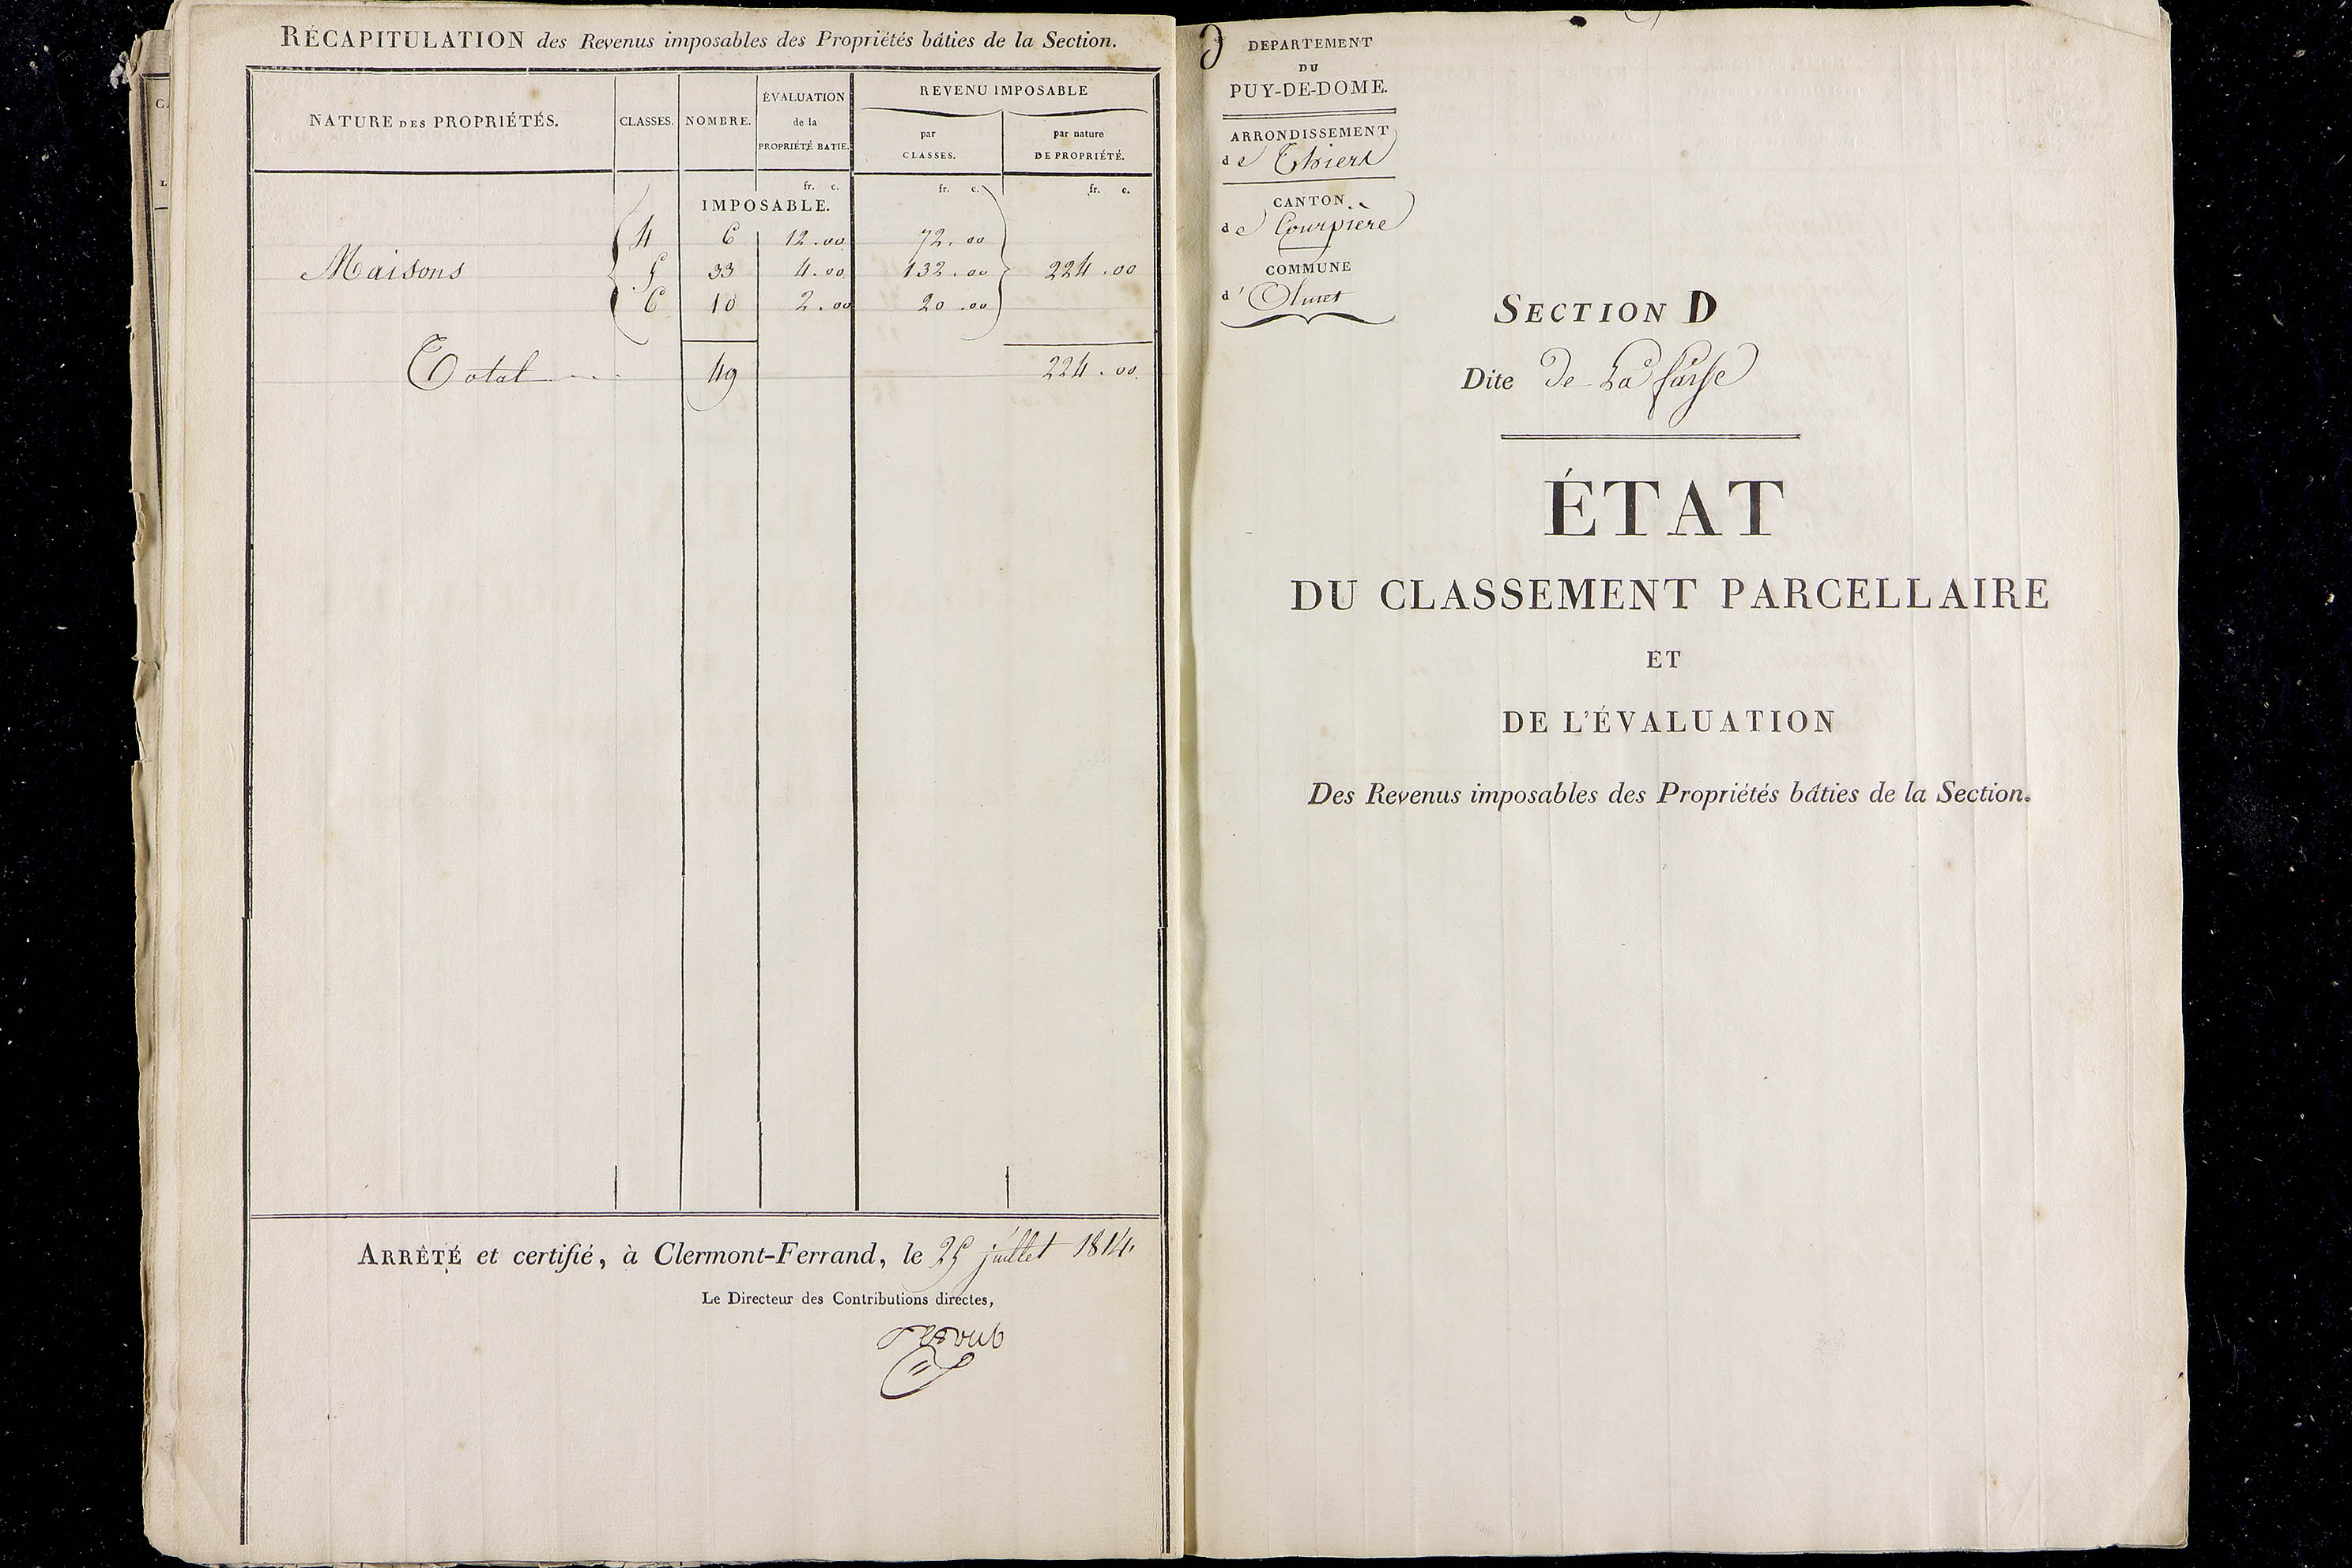 RÉCAPITULATION des Revenus imposables des Propriétés bâties de la Section.
NATURE DES PROPRIÉTÉS. CLASSES. NOMBRE. ÉVALUATION de la PROPRIÉTÉ BATIE. REVENU IMPOSABLE
par CLASSES. par nature DE PROPRIÉTÉ.
fr. c. fr. c. fr. c.
IMPOSABLE.
4 6 12.00 72.00
Maisons 5 33 4.00 132.00 224.00
6 10 2.00 20.00
Total 49 224.00
ARRÊTÉ et certifié, à Clermont-Ferrand, le 25 juillet 1814.
Le Directeur des Contributions directes,
D
DEPARTEMENT
DU
PUY-DE-DOME.
ARRONDISSEMENT
de Thiers
CANTON
de Courpière
COMMUNE
d'Olmet
SECTION D
Dite De La
ÉTAT
DU CLASSEMENT PARCELLAIRE
ET
DE L'ÉVALUATION
Des Revenus imposables des Propriétés bâties de la Section.